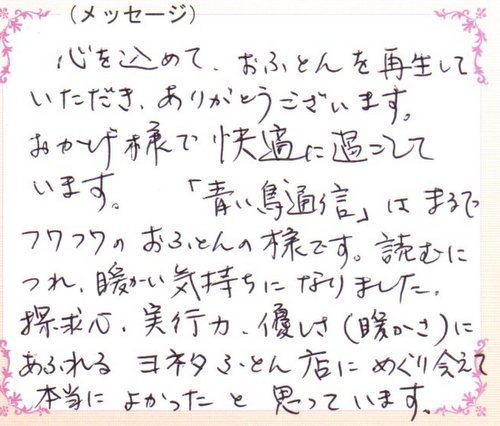 (メッセージ)
心を込めて、おふとんを再生して
いただき、ありがとうございます。
おかげ様で快適に過ごして
います。 「青い鳥通信」はまるで
フワフワのおふとんの様です。読むに
つれ、暖かい気持ちになりました。
探求心、実行力、優しさ(暖かさ)に
あふれるヨネタふとん店にめぐり会えて
本当によかったと思っています。